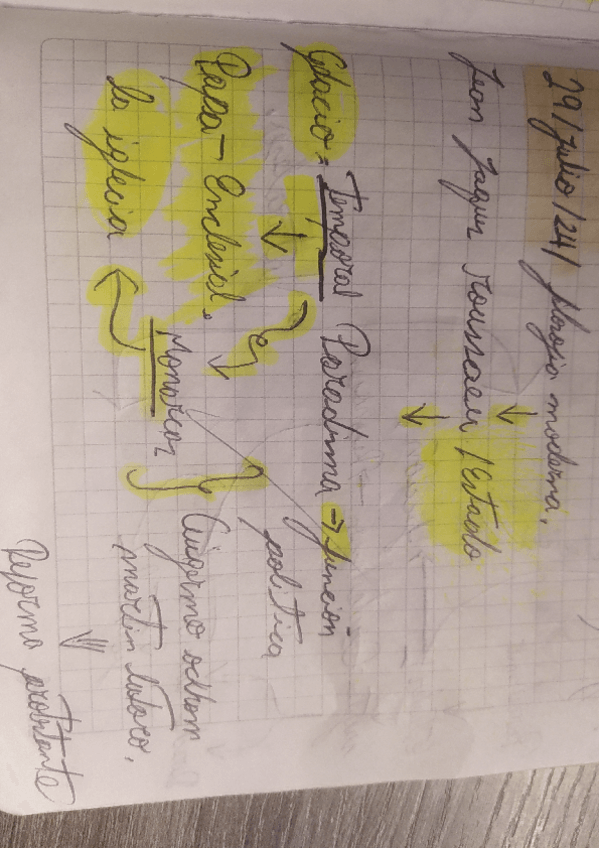 29/Julio/24/ filosofía moderna.
Jean Jaquis Roussaeu / Estado
Glacio = Temporal Paradima → función
política
Papa - Enclesiel.
Monarca
Guigermo ockam
la iglecia
martin lutero.
Reforma protestante